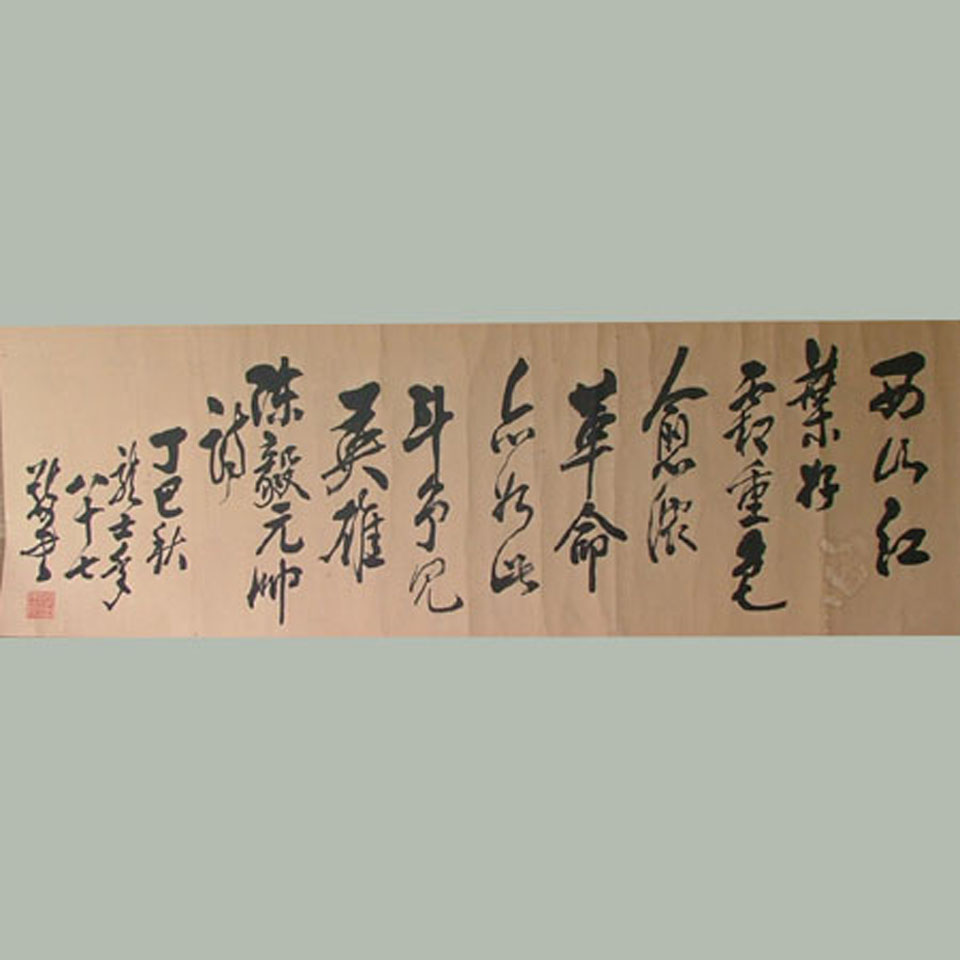 西山红
葉好
霜重色
愈濃
革命
亦如此
斗争见
英雄
陈毅元帅
诗
丁巳秋
龚士秀
八十七